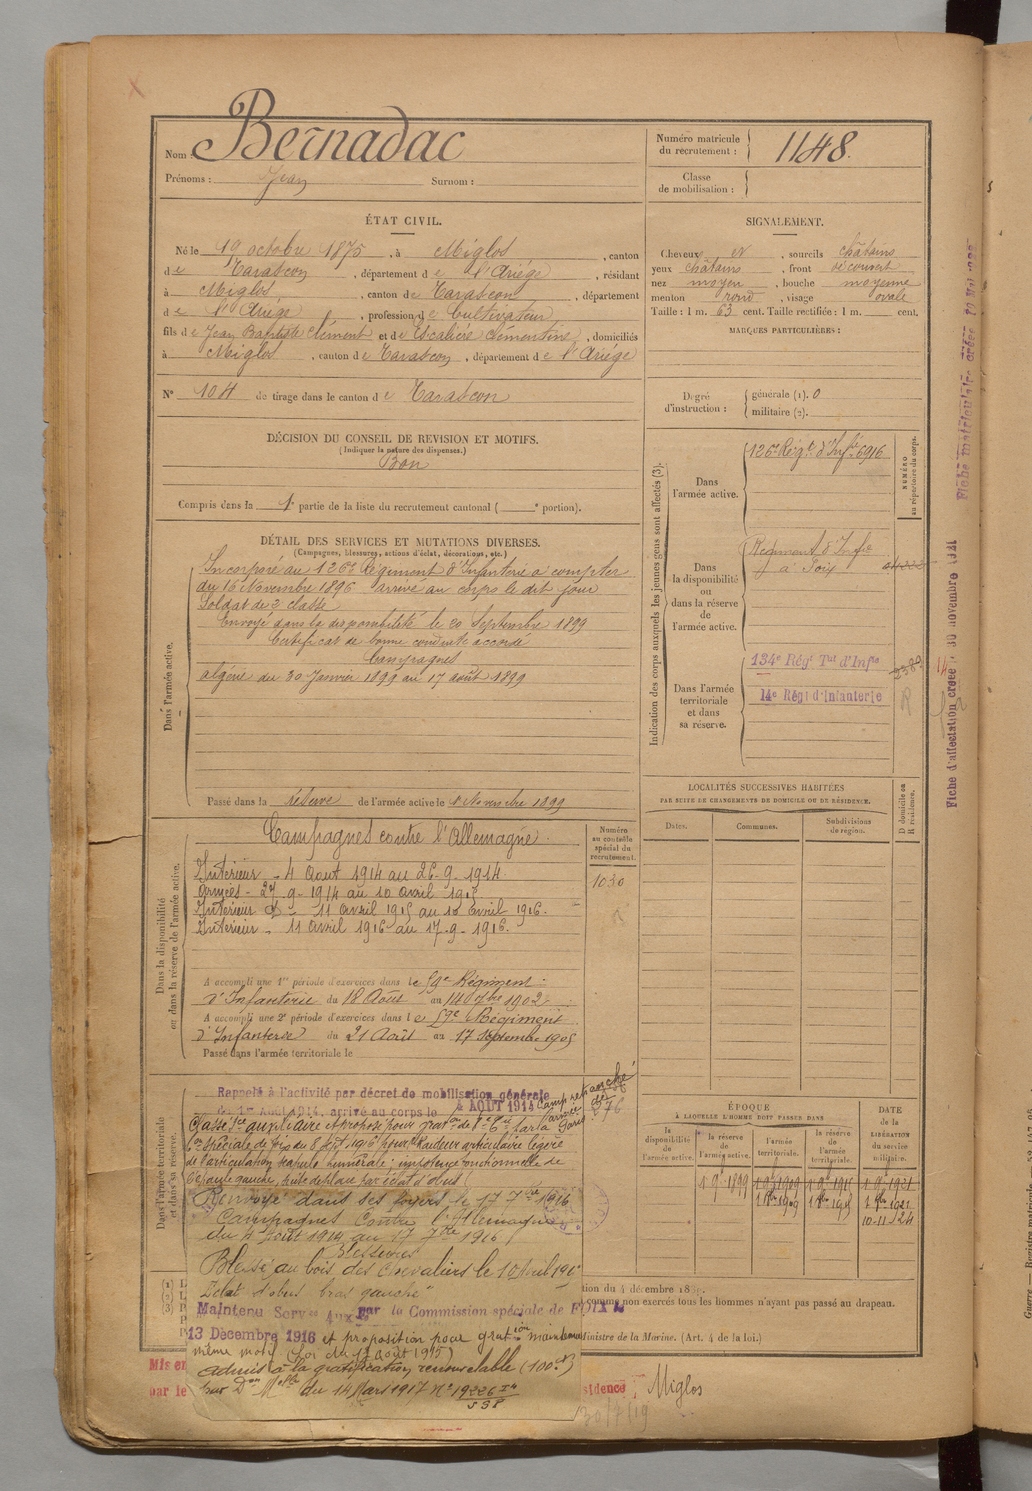 Nom : Bernadac
Prénoms : Jean Surnom :
Numéro matricule du recrutement : 1148.
Classe de mobilisation :
ÉTAT CIVIL.
Né le 19 octobre 1875, à Miglos, canton
de Tarascon, département de l'Ariége, résidant
à Miglos, canton de Tarascon, département
de l'Ariége, profession de Cultivateur
fils de Jean Baptiste Clément et de Escalière Clémentine, domiciliés
à Miglos, canton de Tarascon, département de l'Ariége
N° 104 de tirage dans le canton de Tarascon
SIGNALEMENT.
Cheveux et, sourcils châtains
yeux châtains, front découvert
nez moyen, bouche moyenne
menton rond, visage ovale
Taille : 1 m. 63 cent. Taille rectifiée : 1 m. cent.
MARQUES PARTICULIÈRES :
Degré d'instruction : générale (1). 0
militaire (2).
DÉCISION DU CONSEIL DE REVISION ET MOTIFS.
(Indiquer la nature des dispenses.)
Bon
Compris dans la 1e partie de la liste du recrutement cantonal ( e portion).
DÉTAIL DES SERVICES ET MUTATIONS DIVERSES.
(Campagnes, blessures, actions d'éclat, décorations, etc.)
Dans l'armée active.
Incorporé au 126e Régiment d'Infanterie à compter
du 16 Novembre 1896 arrivé au corps le dit jour
Soldat de 2e classe
Envoyé dans la disponibilité le 20 Septembre 1899
Certificat de bonne conduite accordé
Campagnes
Algérie du 30 Janvier 1899 au 17 août 1899
Passé dans la réserve de l'armée active le 1 Novembre 1899
Indication des corps auxquels les jeunes gens sont affectés (3).
NUMÉRO au répertoire du corps.
Dans l'armée active.
126e Régt d'Infie 6916
Dans la disponibilité ou dans la réserve de l'armée active.
Régiment d'Infie
à Foix
Dans l'armée territoriale et dans sa réserve.
134e Régt Tal d'Infie
14e Régt d'Infanterie
R
Fiche matriculaire créée
Fiche d'affectation créée 30 novembre 1921
LOCALITÉS SUCCESSIVES HABITÉES
PAR SUITE DE CHANGEMENTS DE DOMICILE OU DE RÉSIDENCE.
Dates. Communes. Subdivisions de région. D domicile ou R résidence.
Dans la disponibilité ou dans la réserve de l'armée active.
Campagnes contre l'Allemagne.
Numéro au contrôle spécial du recrutement.
1030
Intérieur - 4 Aout 1914 au 26-9-1914.
Armées - 27-9-1914 au 10 avril 1915
Intérieur - 11 avril 1915 au 10 Avril 1916.
Intérieur - 11 avril 1916 au 17-9-1916.
A accompli une 1re période d'exercices dans le 59e Régiment
d'Infanterie du 18 Août au 14 7bre 1902
A accompli une 2e période d'exercices dans le Régiment
d'Infanterie du 21 Août au 17 Septembre 1905
Passé dans l'armée territoriale le
Dans l'armée territoriale et dans sa réserve.
Rappelé à l'activité par décret de mobilisation générale
du 1er Août 1914, arrivé au corps le 4 AOUT 1914 Camp retranché
de Paris
Classé Sce auxiliaire et proposé pour
spéciale de Foix du 8 Sept 1916 pour Raideur articulaire légère
de l'articulation scapulo humérale ; impotence fonctionnelle de
l'épaule gauche, suite de plaie par éclat d'obus
Renvoyé dans ses foyers le 17 7bre 1916
Campagnes Contre l'Allemagne
du 4 Août 1914 au 17 7bre 1916
Blessures
Blessé au bois des Chevaliers le 10 Avril 191
Eclat d'obus bras gauche
Maintenu Service Aux par la Commission spéciale de FOIX
13 Décembre 1916 et proposition pour gration maintenue
même motif (Loi du 17 août 1915)
Admis à la gratification renouvelable (100)
sur Don Melle du 14 Mars 1917 N° 19226
538
ÉPOQUE
À LAQUELLE L'HOMME DOIT PASSER DANS
DATE DE LA LIBÉRATION DU SERVICE MILITAIRE.
la disponibilité de l'armée active. la réserve de l'armée active. l'armée territoriale. la réserve de l'armée territoriale.
1 9bre 1899 1 9bre 1909 1 9bre 1915 1 9bre 1921
1 1909 1 1915 1 1921
10-11-24
tion du 4 décembre 18
comme non exercés tous les hommes n'ayant pas passé au drapeau.
Ministre de la Marine. (Art. 4 de la loi.)
Mis en
par le
sidence Miglos
30/7/19